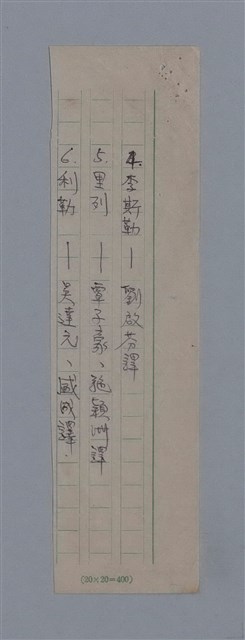 4. 李斯勒 — 劉啟芬譯
5. 里列 — 覃子豪、施穎洲譯
6. 利勒 — 吳達元、盛成譯.
(20×20=400)